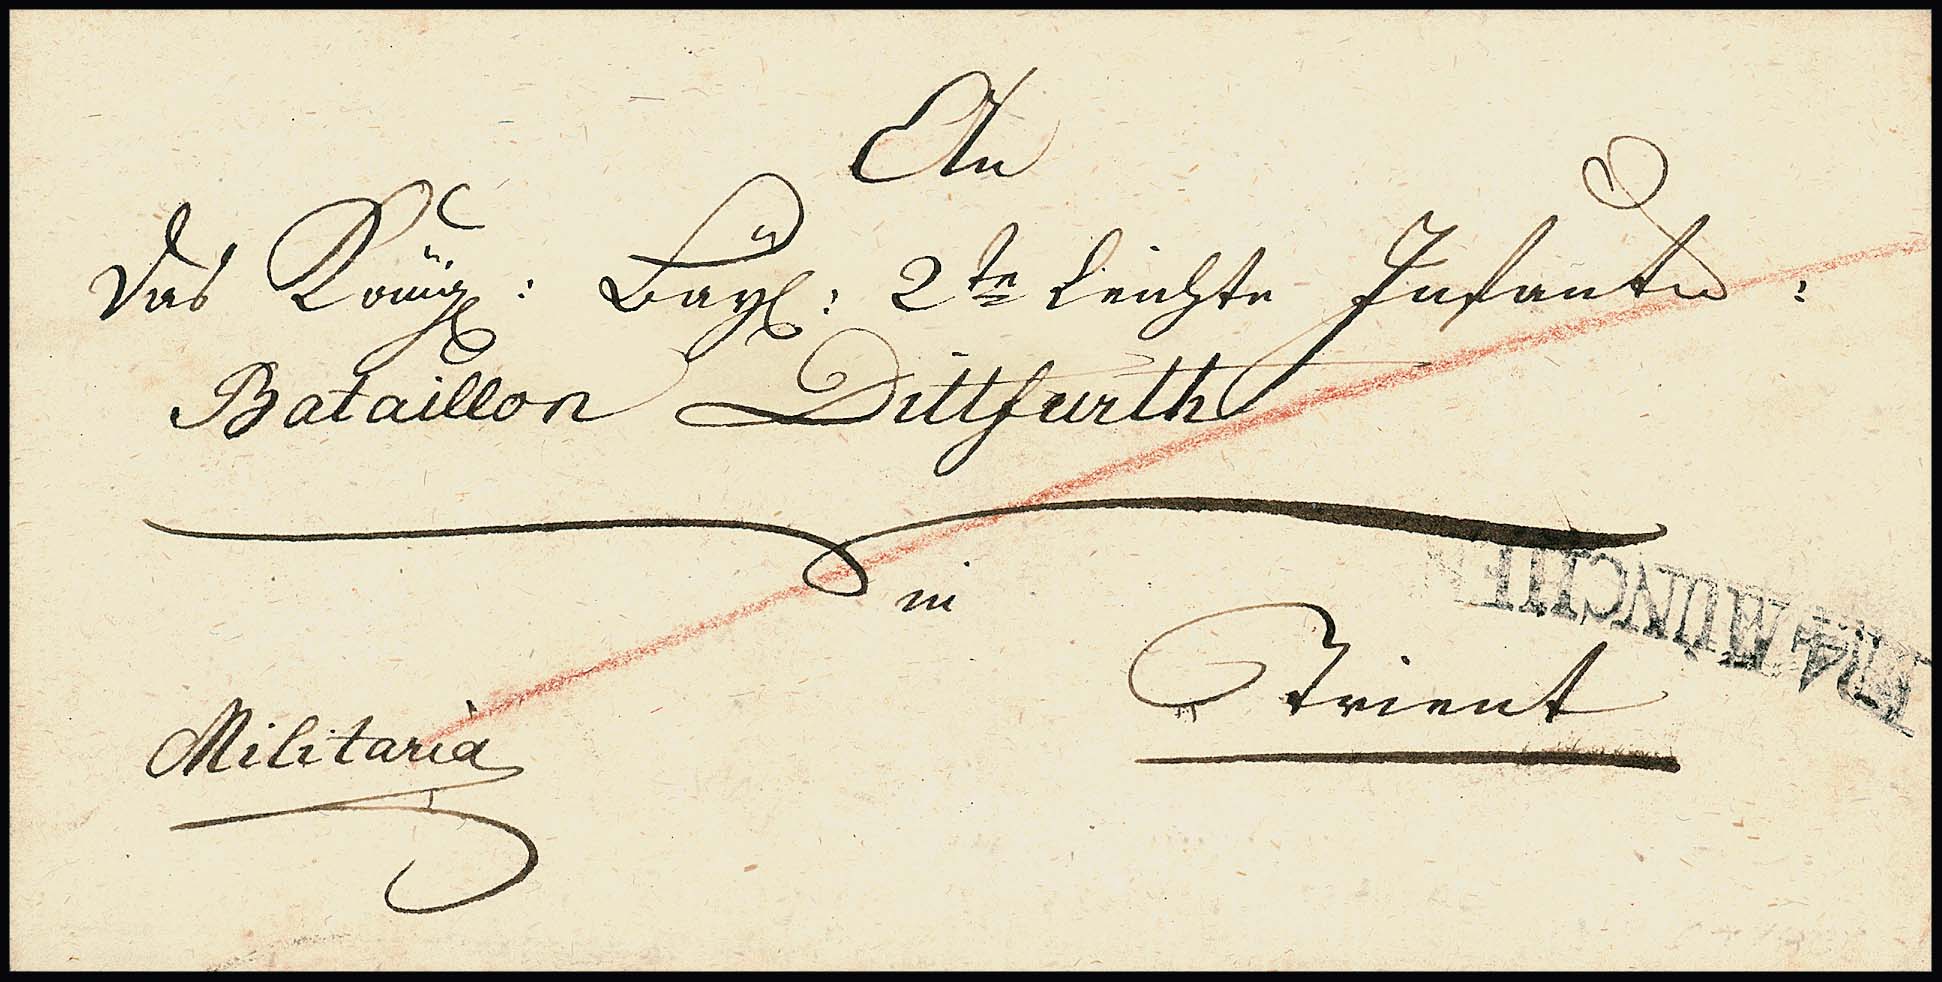 An
das Königl: Bayl: 2te leichte Infante:
Bataillon Dittfurth
in
Trient
Militaria
R.4. MÜNCHEN